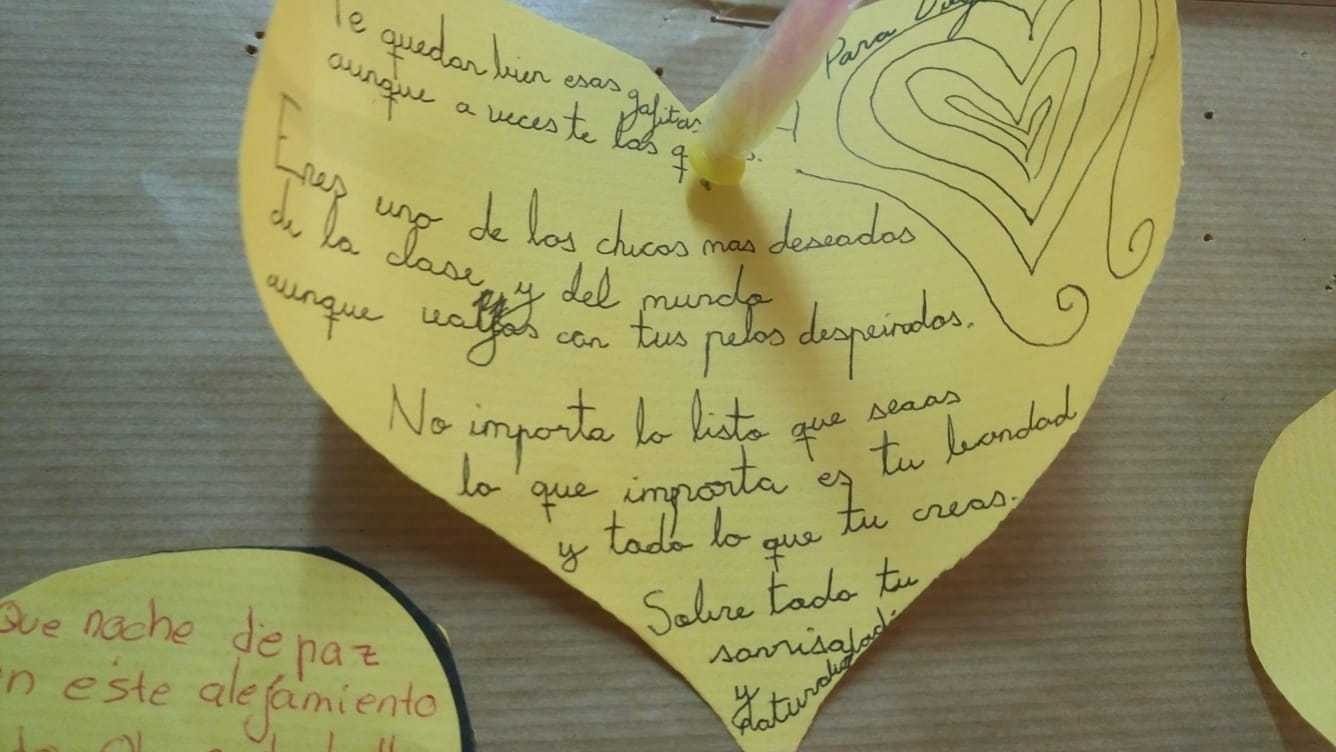 Te quedan bien esas gafitas
aunque a veces te las
Eres uno de los chicos mas deseados
de la clase y del mundo
aunque vallas con tus pelos despeinados.
No importa lo listo que seaas
lo que importa es tu bondad
y todo lo que tu creas.
Sobre todo tu
sonrisa
y
Para
Que noche de paz
en este alejamiento